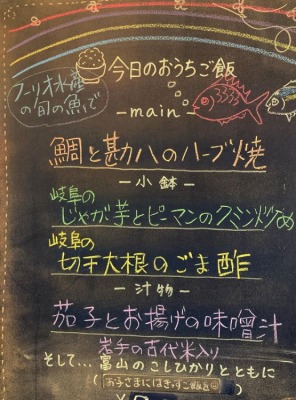 今日のおうちご飯
フーリオ水産
の旬の魚で
-main-
鯛と勘八のハーブ焼
-小鉢-
岐阜の
じゃが芋とピーマンのクミン炒め
岐阜の
切干大根のごま酢
-汁物-
茄子とお揚げの味噌汁
岩手の古代米入り
そして…富山のこしひかりとともに
(お子さまにはきっずご飯を)